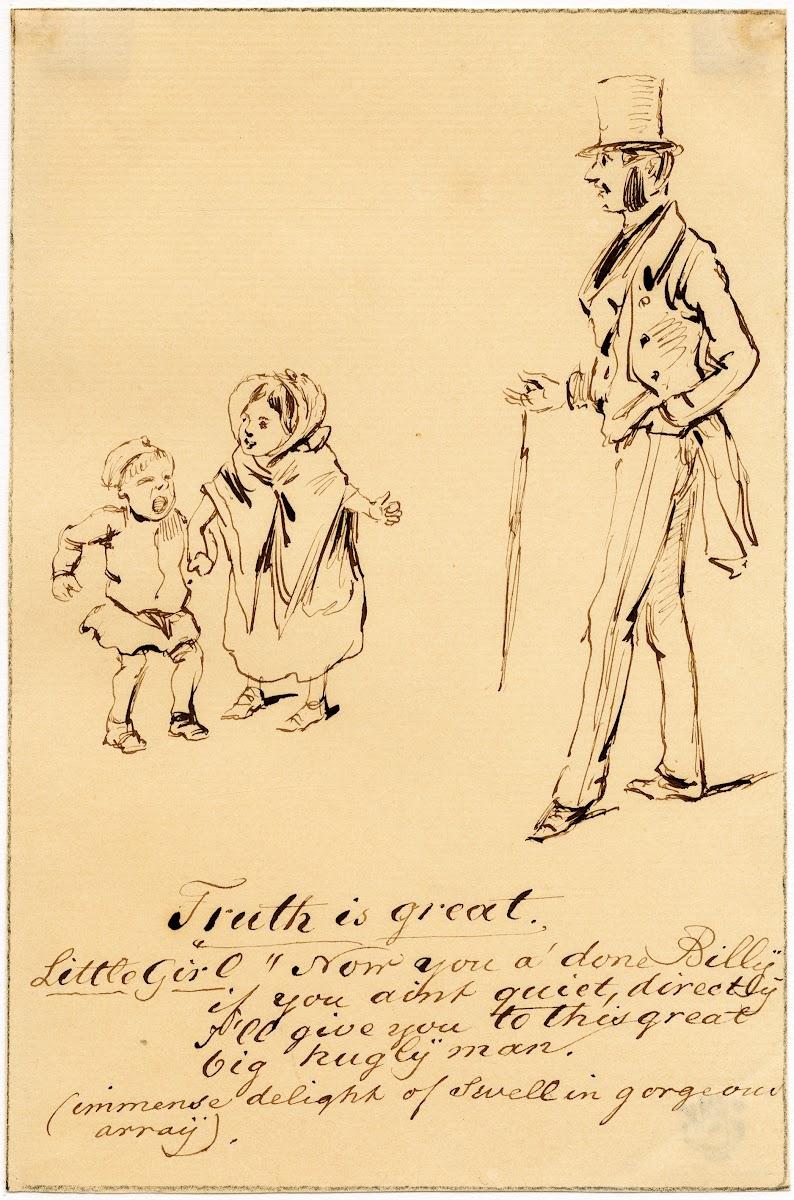 Truth is great.
Little Girl "Now you a' done Billy
if you aint quiet, directly
I'll give you to this great
big hugly man.
(immense delight of Swell in gorgeous
array).